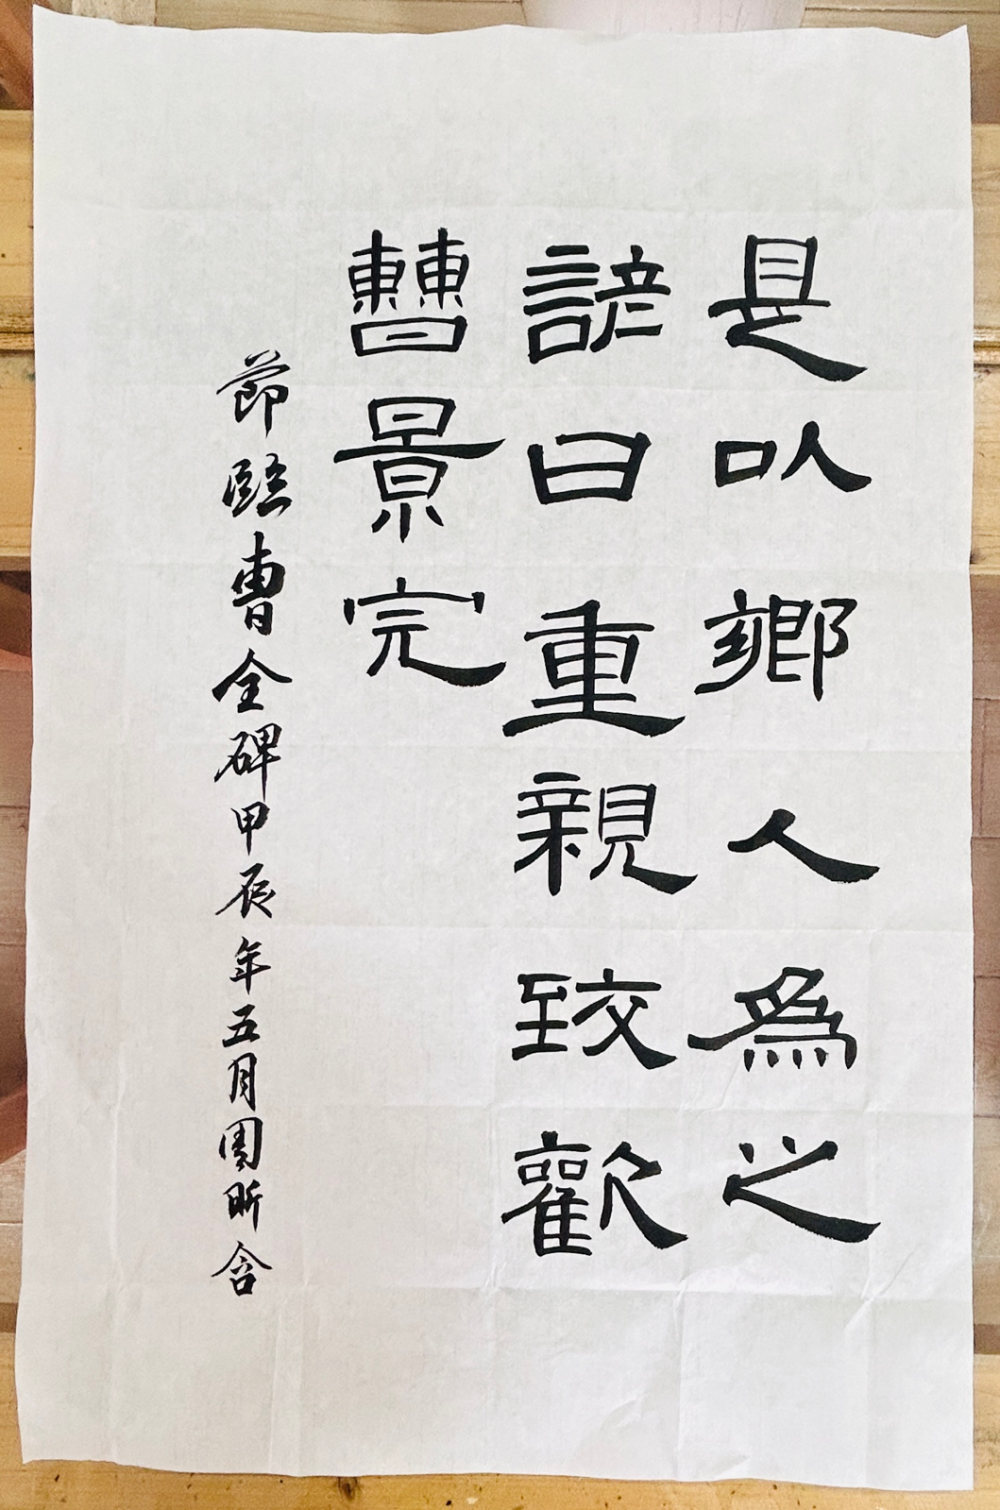 是以鄉人為之
諺曰重親致歡
曹景完
節臨曹全碑甲辰年五月周昕含